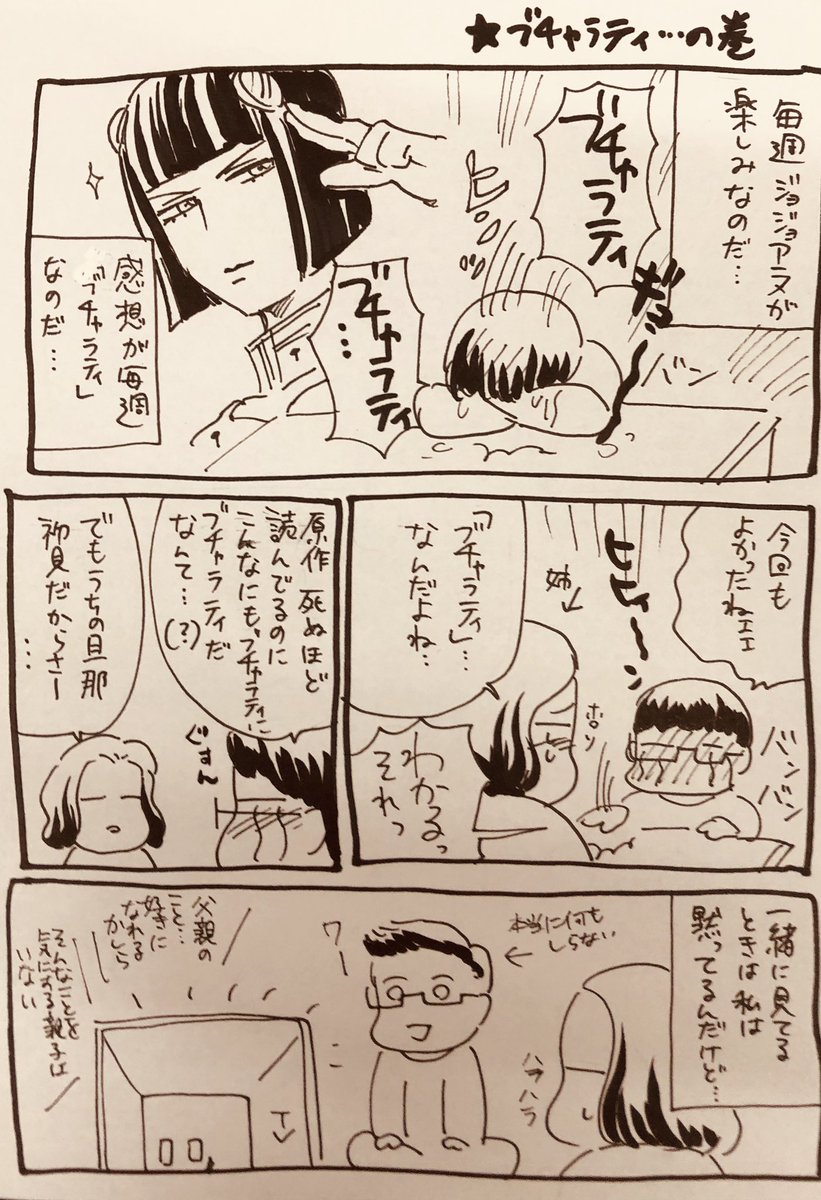 ★ブチャラティ…の巻
毎週ジョジョアニメが
楽しみなのだ…
ブチャラティ
ヒンッ
ギュ〜
バン
ブチャラティ
…
感想が毎週
「ブチャラティ」
なのだ…
今回も
よかったねェェ
ヒィーン
バンバン
姉
「ブチャラティ」…
なんだよね…
ポロン
わかるっ
それっ
原作死ぬほど
読んでるのに
こんなにも、ブチャラティに
ブチャラティだ
なんて…(?)
ぐすん
でもうちの旦那
初見だからさー
…
一緒に見てる
ときは私は
黙ってるんだけど…
ハラハラ
本当に何も
しらない
ワー
TV
父親の
こと…
好きに
なれる
かしら
そんなことを
気にする親子は
いない